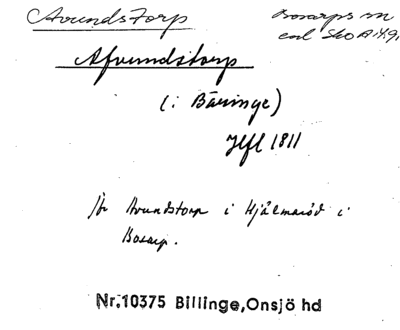 Avundstorp
Bosarps sn
enl SkO A:4.9
Afvundstorp
(i Bäringe)
Hfl 1811
Jfr Avundstorp i Hjälmaröd i
Bosarp.
Nr.10375 Billinge,Onsjö hd